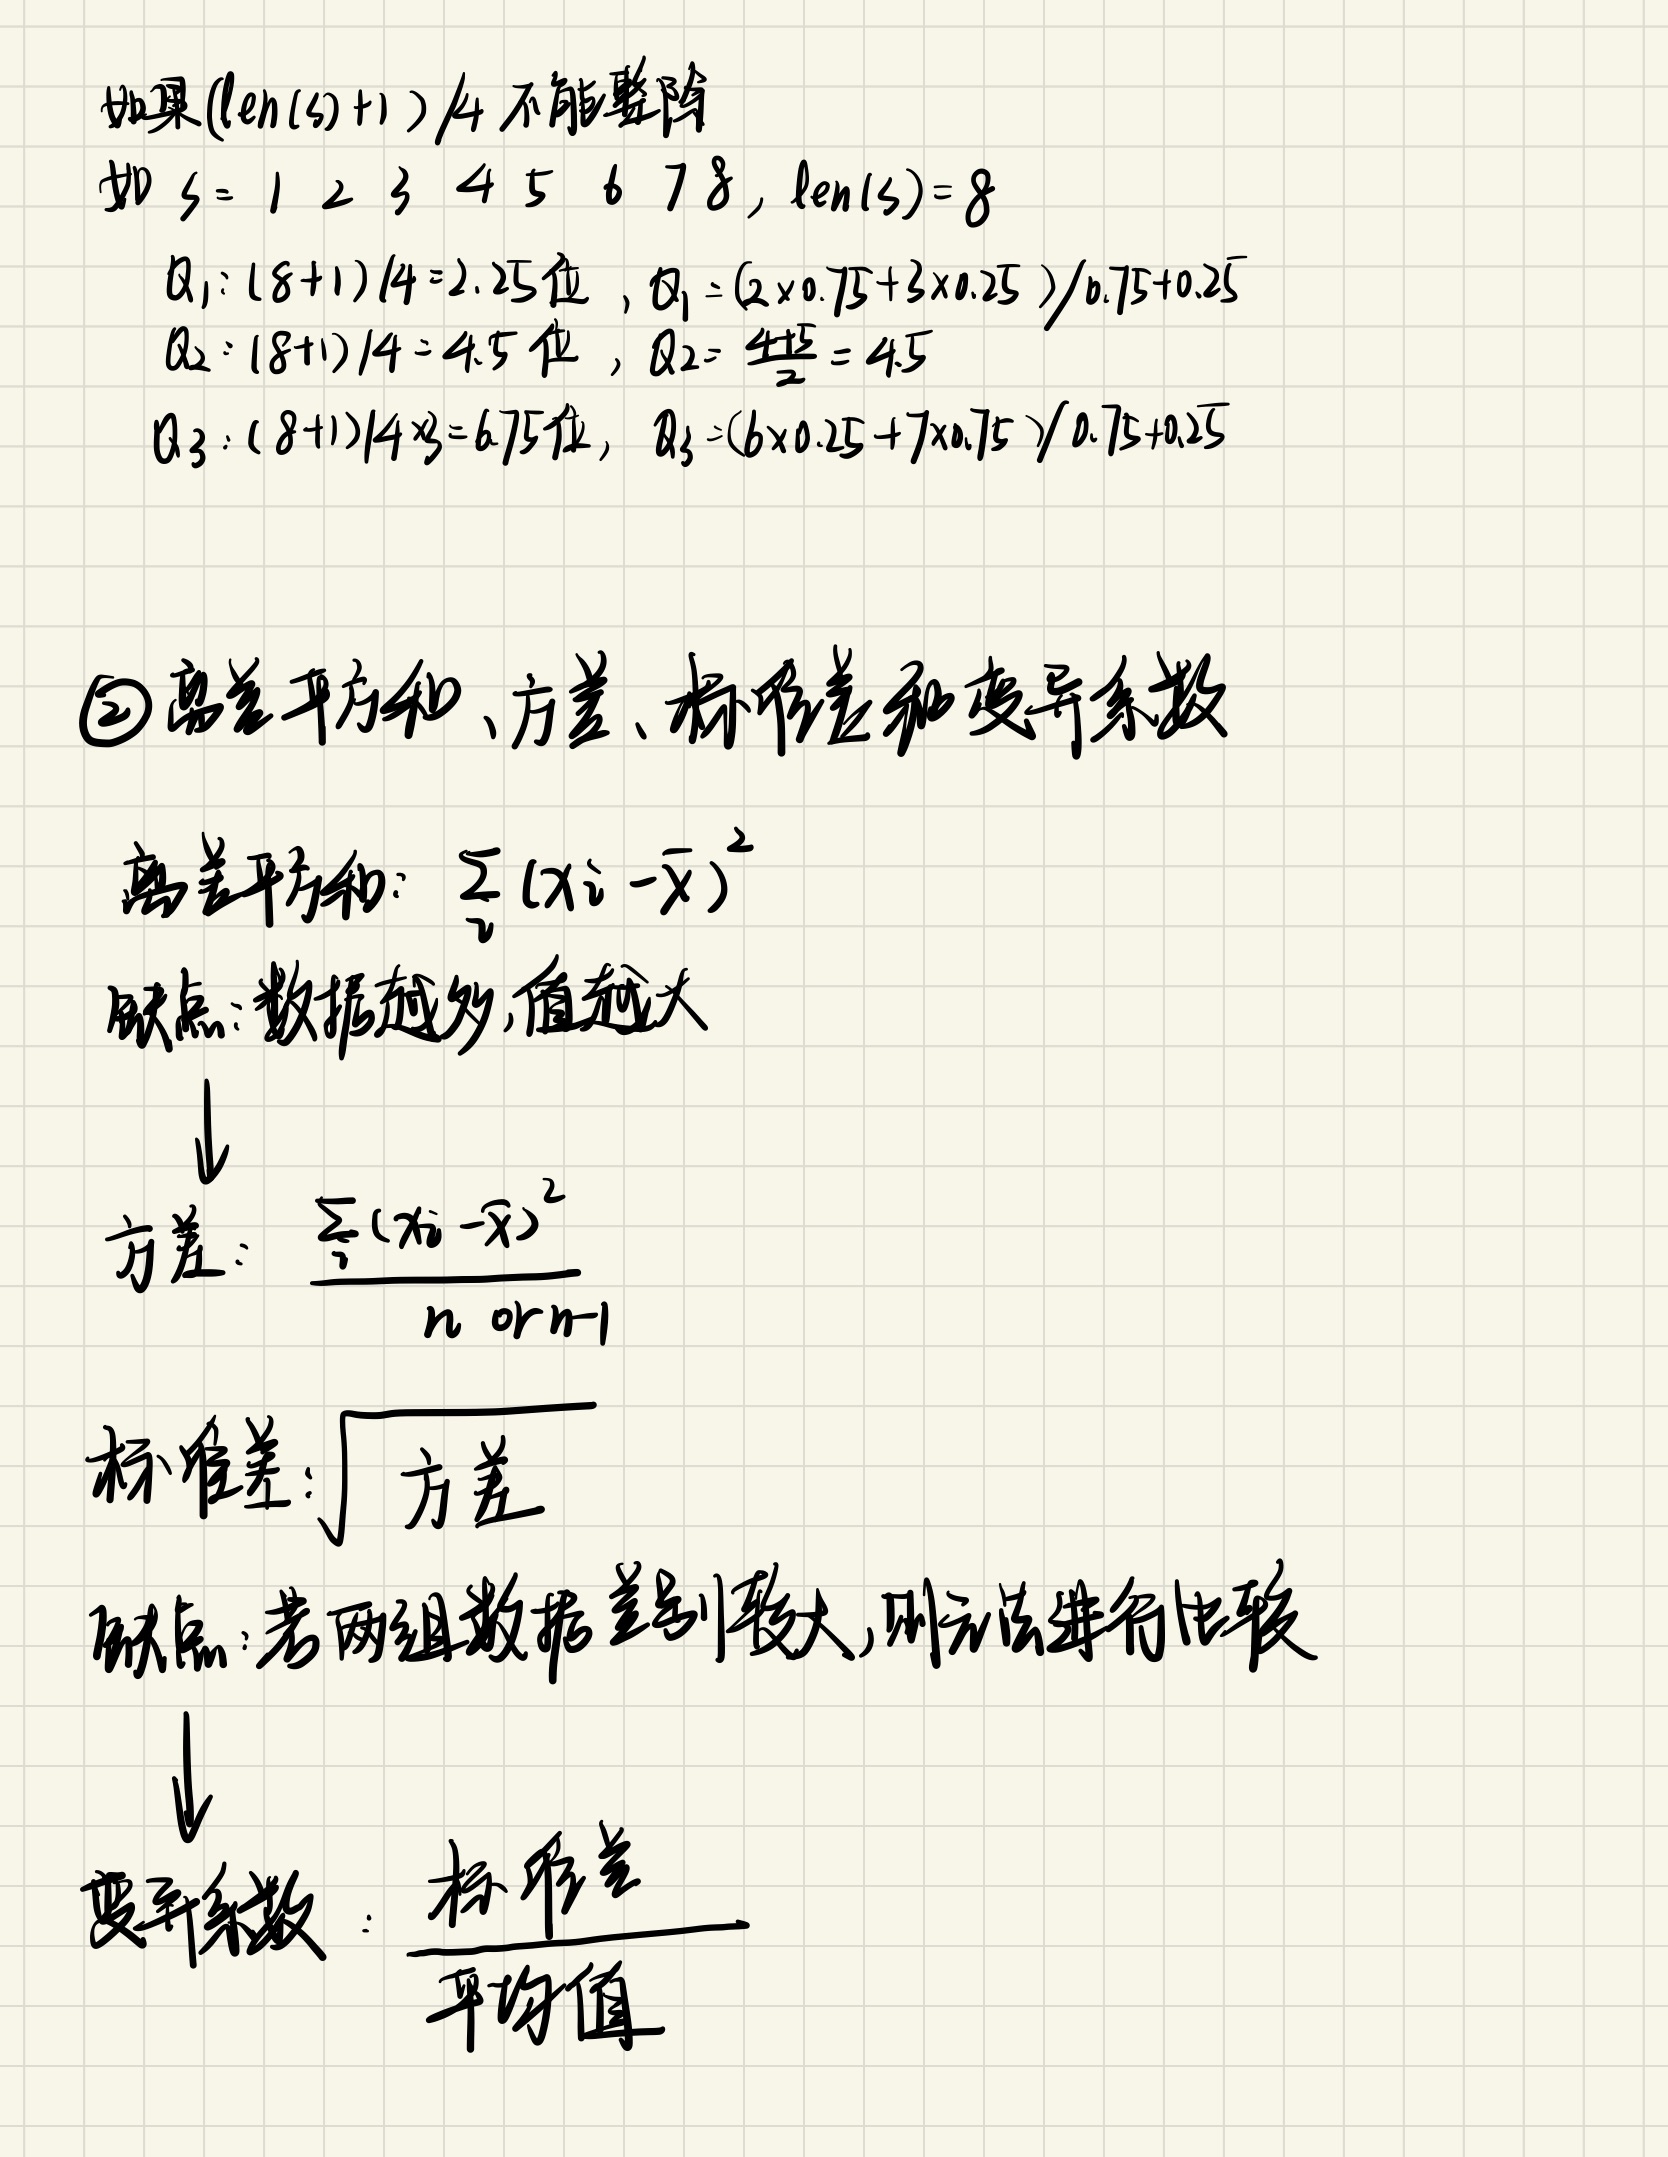 如果(len(s)+1)/4不能整除
如 s = 1 2 3 4 5 6 7 8, len(s)=8
Q1:(8+1)/4=2.25位, Q1=(2×0.75+3×0.25)/0.75+0.25
Q2:(8+1)/4=4.5位, Q2=(4+5)/2=4.5
Q3:(8+1)/4×3=6.75位, Q3=(6×0.25+7×0.75)/0.75+0.25
②离差平方和、方差、标准差和变异系数
离差平方和: Σi (xi-x̄)²
缺点:数据越多,值越大
↓
方差: Σi(xi-x̄)²
n or n-1
标准差:√方差
缺点:若两组数据差别较大,则无法进行比较
↓
变异系数: 标准差
平均值